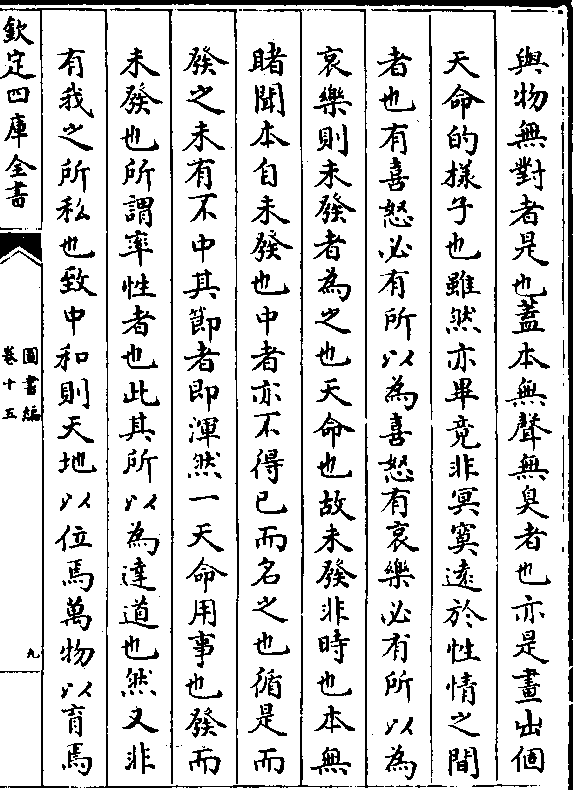 與物無對者是也蓋本無聲無臭者也亦是畫出個
天命的㨾子也雖然亦畢竟非冥寞逺於性情之間
者也有喜怒必有所以為喜怒有哀樂必有所以為
哀樂則未發者為之也天命也故未發非時也本無
睹聞本自未發也中者亦不得已而名之也循是而
發之未有不中其節者即渾然一天命用事也發而
未發也所謂率性者也此其所以為達道也然又非
有我之所私也致中和則天地以位焉萬物以育焉
欽定四庫全書
圖書編
卷十五
九